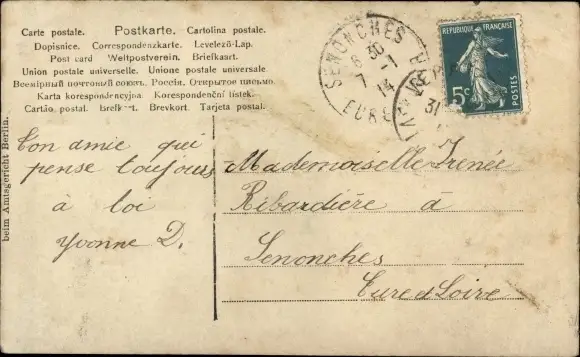 Carte postale. Postkarte. Cartolina postale.
Dopisnice. Correspondenzkarte. Levelező-Lap.
Post card Weltpostverein. Briefkaart.
Union postale universelle. Unione postale universale
Всемірный почтовый союзъ. Россія. Открытое письмо.
Karta korespondencyjna Korespondenční lístek.
Cartão postal. Brefkort. Brevkort. Tarjeta postal.
beim Amtsgericht Berlin.
SENONCHES
8 30
7 -1
14
EURE
31
REPUBLIQUE FRANÇAISE
5c
POSTES
Ton amie qui
pense toujours
à toi
Yvonne D.
Mademoiselle Irenée
Ribardière à
Senonches
Eure et Loire